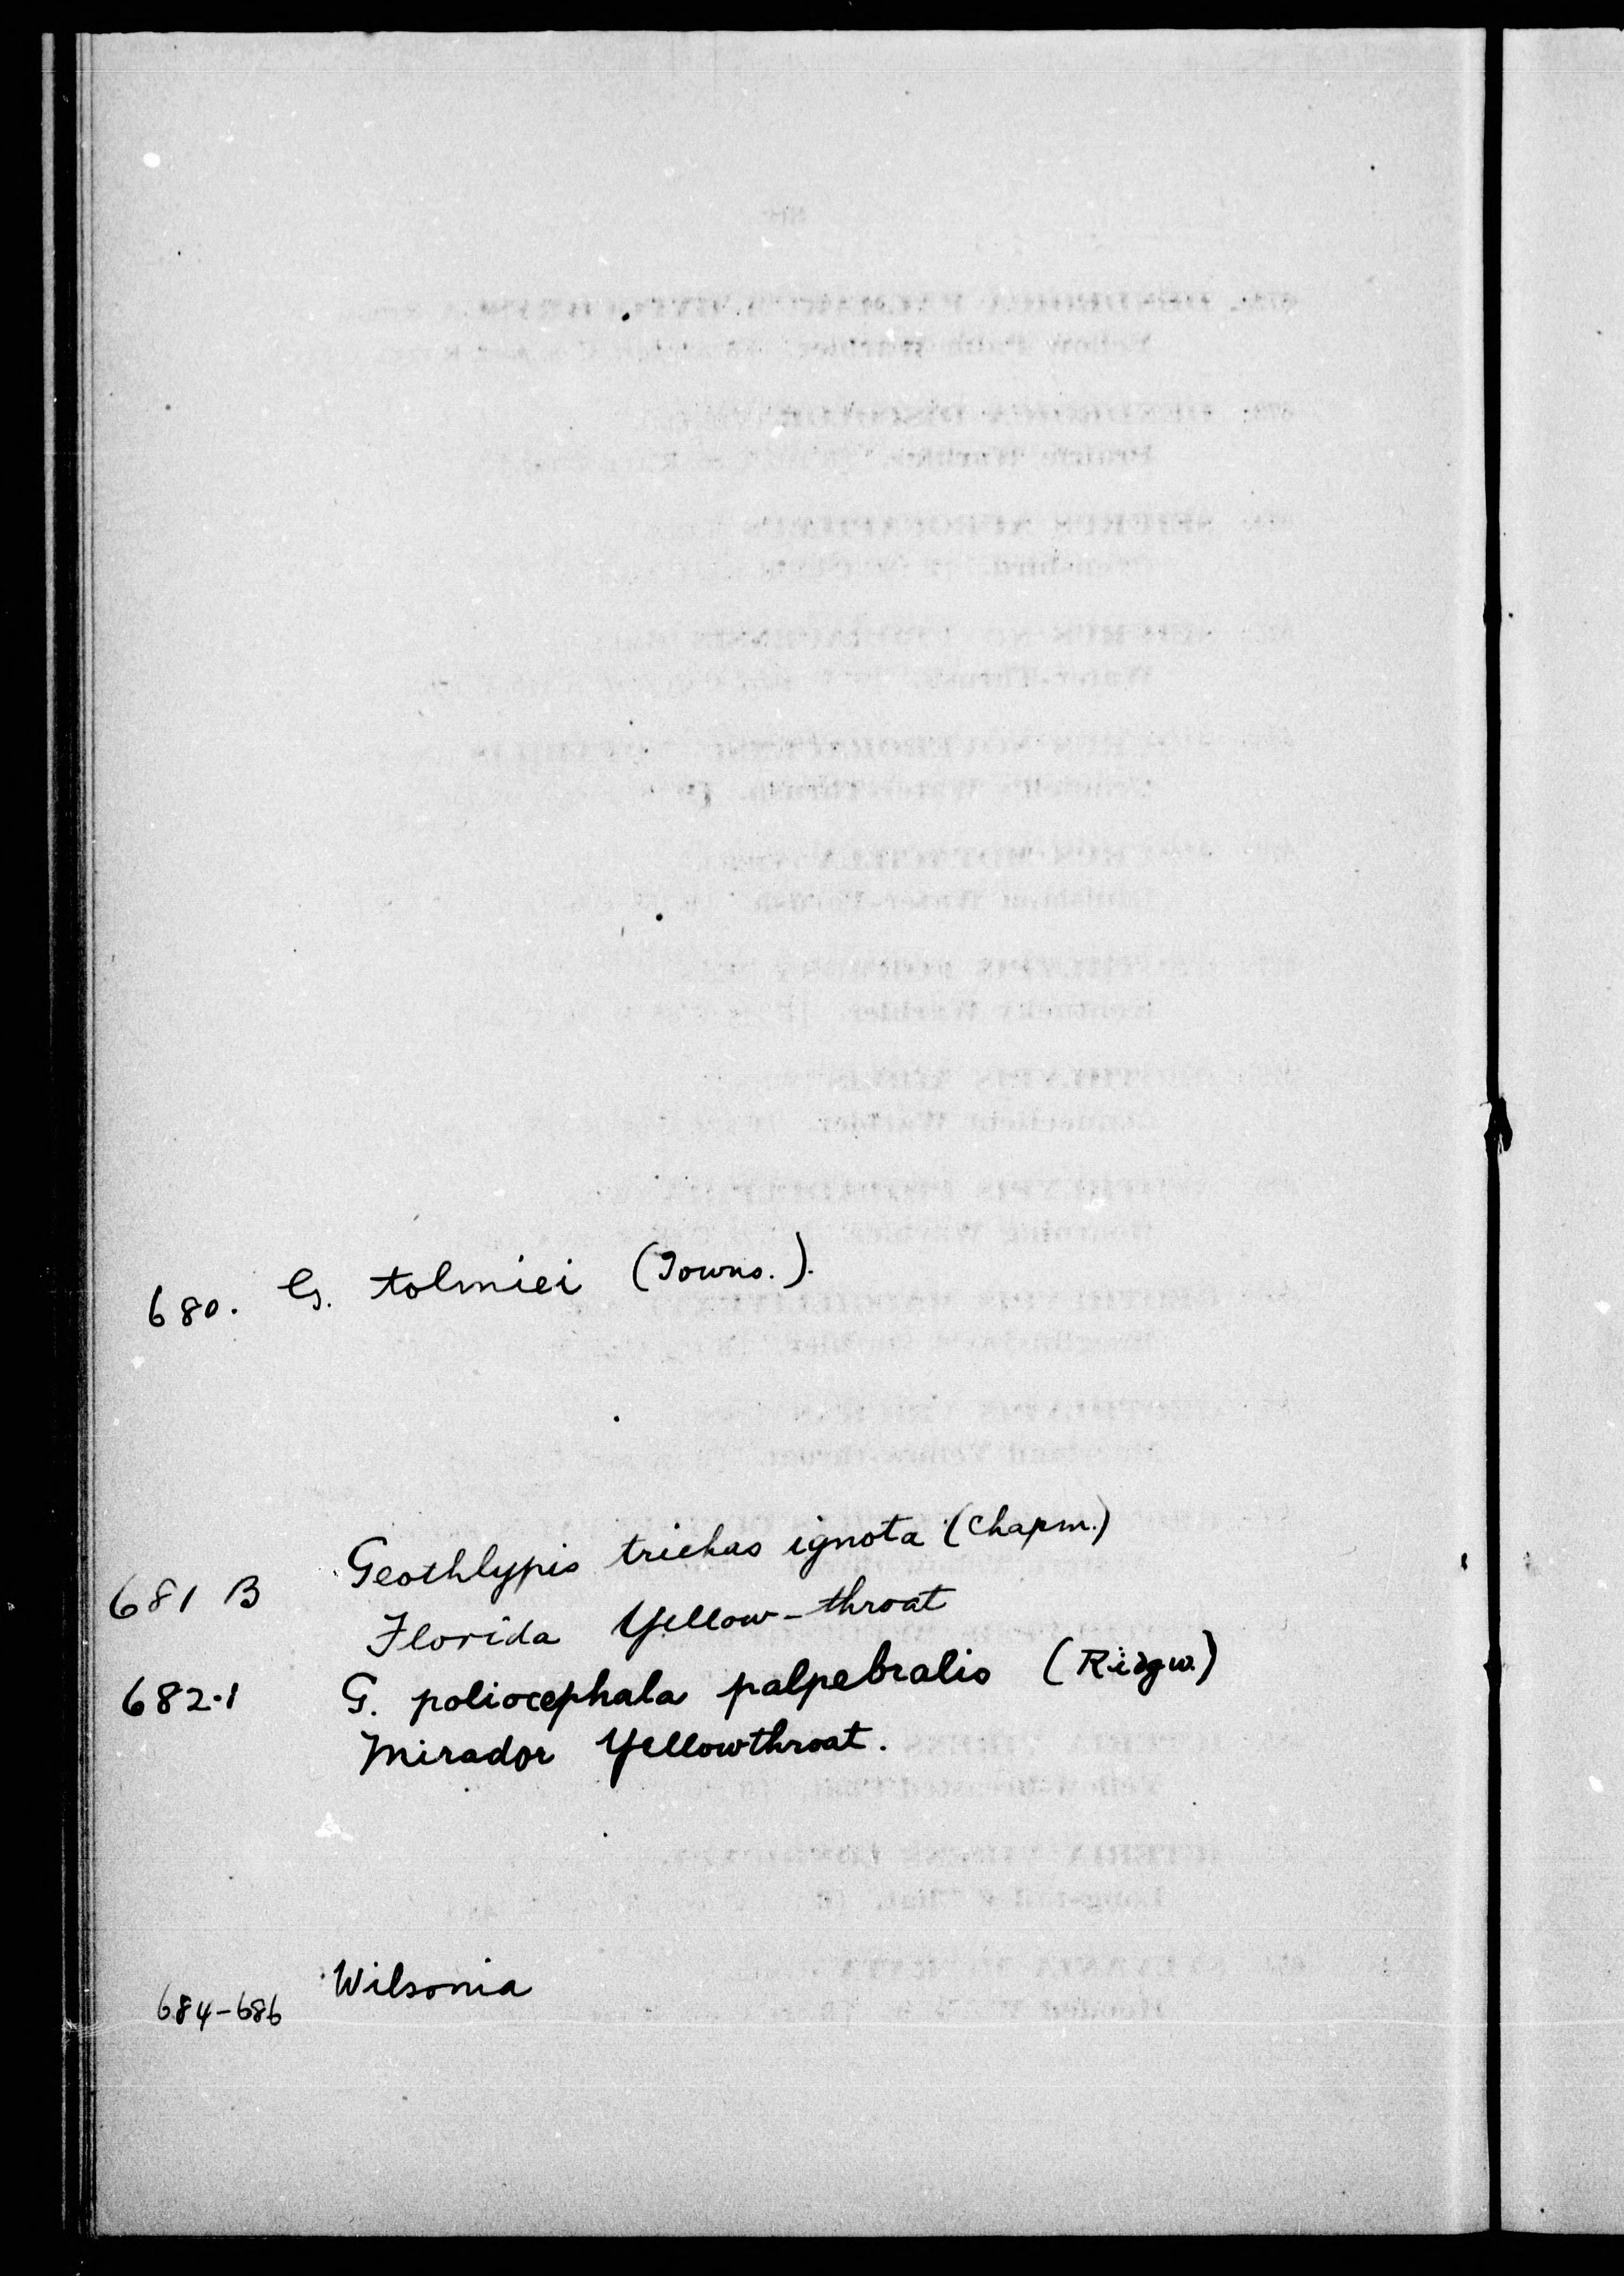 680. G. tolmiei (Towns.).
681 B Geothlypis trichas ignota (Chapm.)
Florida Yellow-throat
682.1 G. poliocephala palpebralis (Ridgw.)
Mirador Yellowthroat.
684-686 Wilsonia